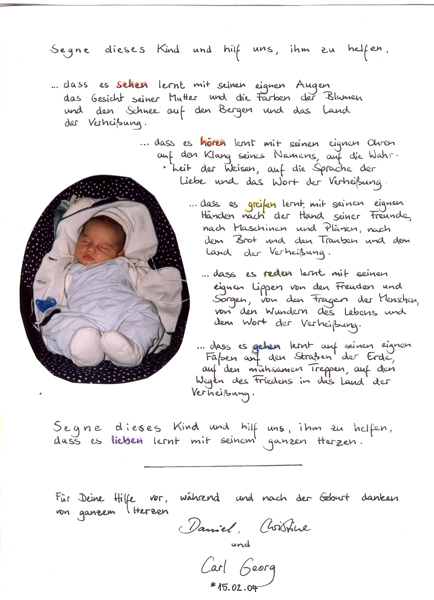 Segne dieses Kind und hilf uns, ihm zu helfen,
... dass es sehen lernt mit seinen eignen Augen
das Gesicht seiner Mutter und die Farben der Blumen
und den Schnee auf den Bergen und das Land
der Verheißung.
... dass es hören lernt mit seinen eignen Ohren
auf den Klang seines Namens, auf die Wahr-
heit der Weisen, auf die Sprache der
Liebe und das Wort der Verheißung.
... dass es greifen lernt, mit seinen eignen
Händen nach der Hand seiner Freunde,
nach Maschinen und Plänen, nach
dem Brot und den Trauben und dem
Land der Verheißung.
... dass es reden lernt mit seinen
eignen Lippen von den Freuden und
Sorgen, von den Fragen der Menschen,
von den Wundern des Lebens und
dem Wort der Verheißung.
... dass es gehen lernt auf seinen eignen
Füßen auf den Straßen der Erde,
auf den mühsamen Treppen, auf den
Wegen des Friedens in das Land der
Verheißung.
Segne dieses Kind und hilf uns, ihm zu helfen,
dass es lieben lernt mit seinem ganzen Herzen.
Für Deine Hilfe vor, während und nach der Geburt danken
von ganzem Herzen
Daniel, Christine
und
Carl Georg
*15.02.04